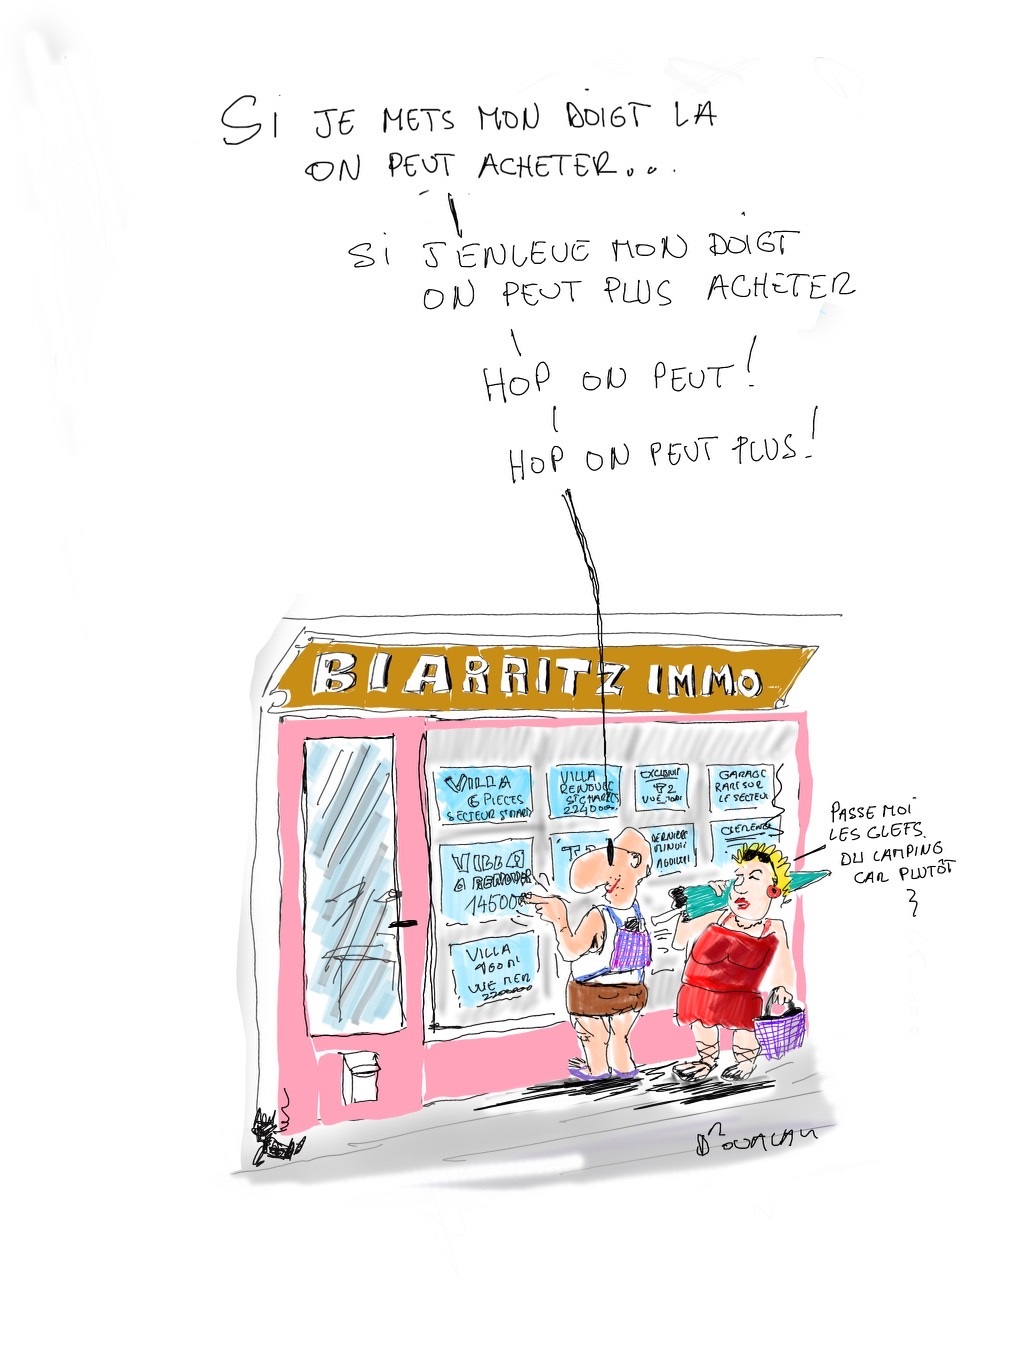 SI JE METS MON DOIGT LA
ON PEUT ACHETER...
SI J'ENLEVE MON DOIGT
ON PEUT PLUS ACHETER
HOP ON PEUT !
HOP ON PEUT PLUS !
BIARRITZ IMMO
VILLA
6 PIECES
SECTEUR ST MARTI
VILLA
RENOVEE
ST CHARLES
2240000
T2
VUE MER
GARAGE
RARE SUR
LE SECTEUR
VILLA
A RENOVER
145000
DERNIERE
MINUTE
VILLA
VUE MER
2200000
PASSE MOI
LES CLEFS
DU CAMPING
CAR PLUTÔT